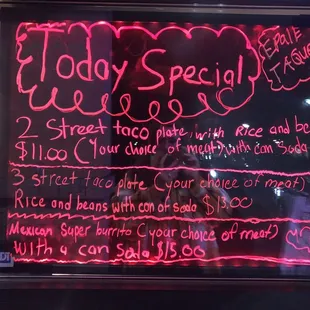 Today Special
EPALE
TAQUE
2 Street taco plate, with Rice and be
$11.00 (Your choice of meat) with can Soda
3 street taco plate (your choice of meat)
Rice and beans with can of soda $13.00
Mexican Super burrito (your choice of meat)
With a can Soda $15.00